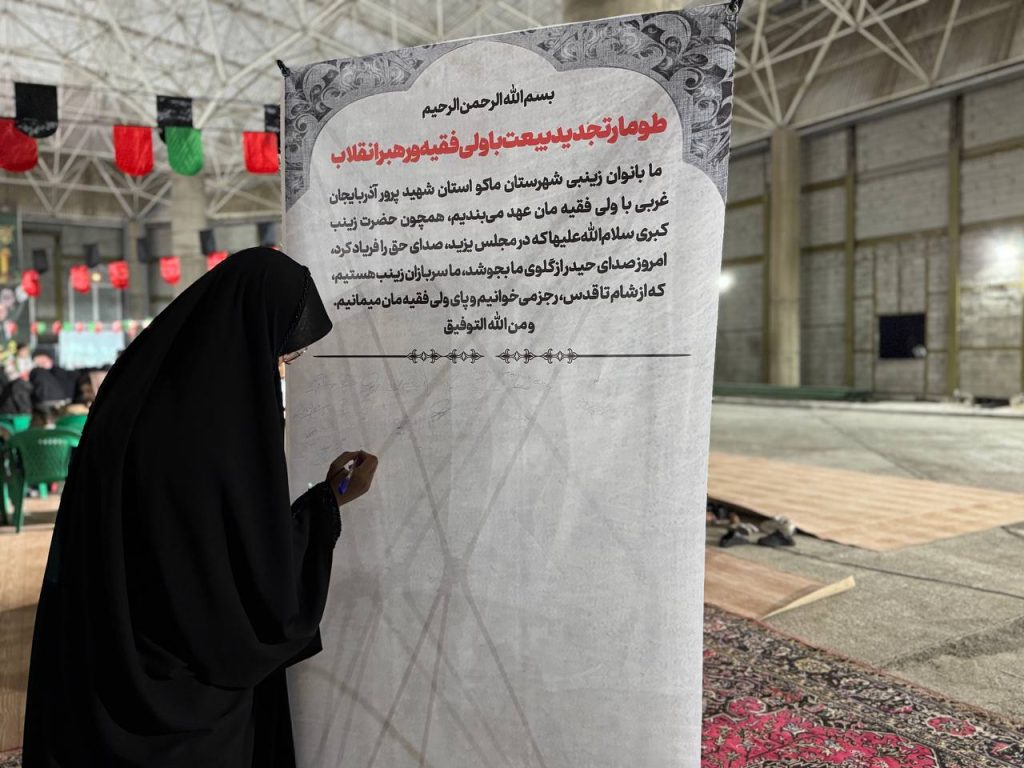 بسم الله الرحمن الرحیم
طومار تجدید بیعت با ولی فقیه و رهبر انقلاب
ما بانوان زینبی شهرستان ماکو استان شهید پرور آذربایجان
غربی با ولی فقیه مان عهد می‌بندیم، همچون حضرت زینب
کبری سلام الله علیها که در مجلس یزید، صدای حق را فریاد کرد،
امروز صدای حیدر از گلوی ما بجوشد، ما سربازان زینب هستیم،
که از شام تا قدس، رجز می‌خوانیم و پای ولی فقیه مان میمانیم.
و من الله التوفیق